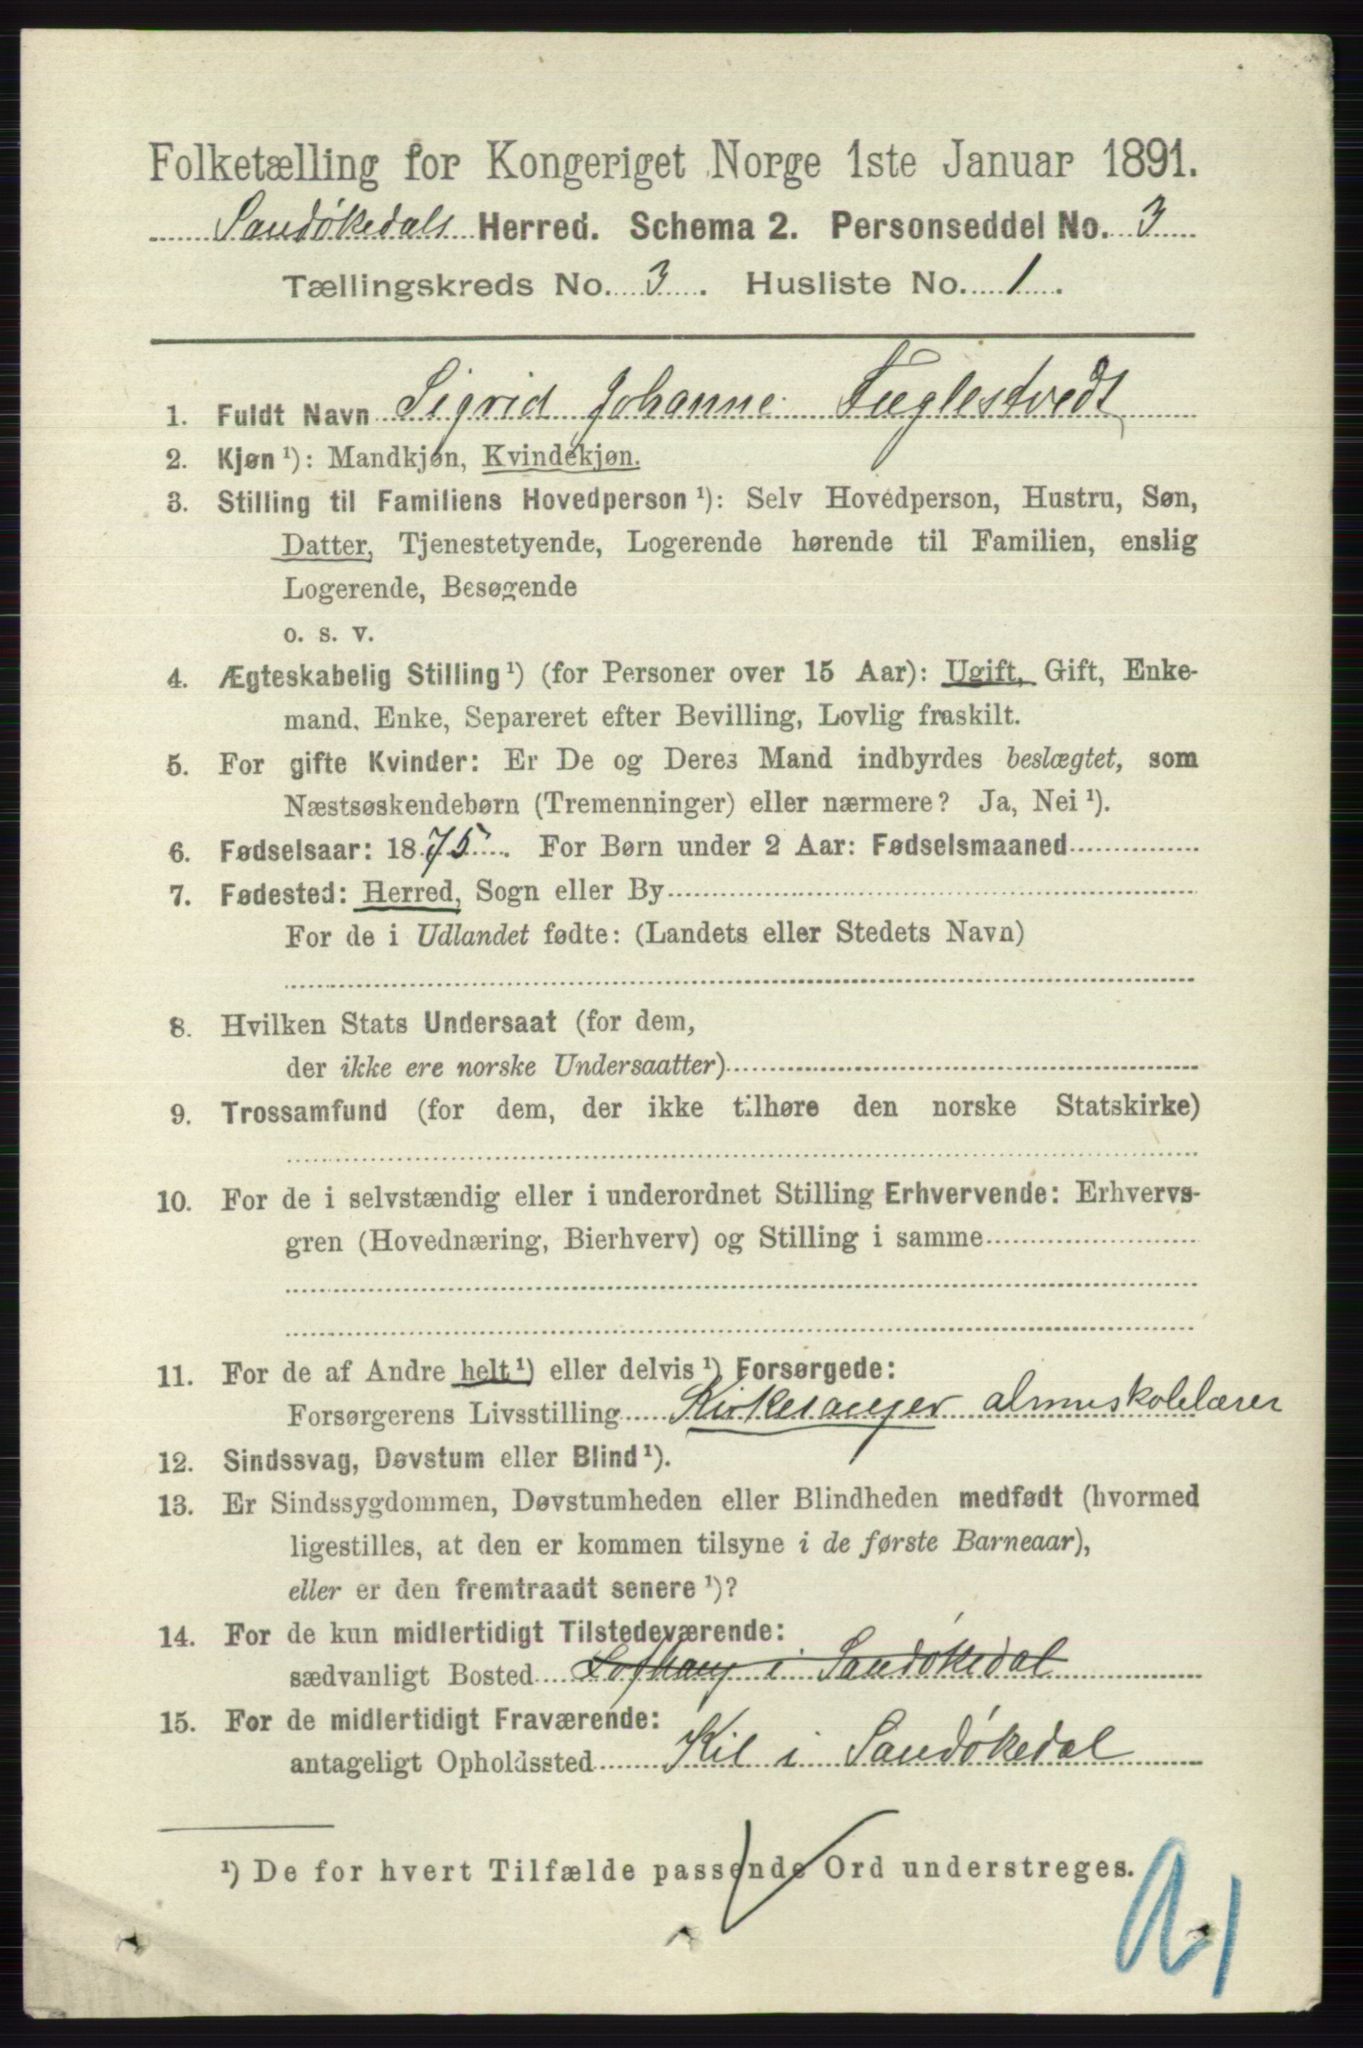 Folketælling for Kongeriget Norge 1ste Januar 1891.
Sandøkedals Herred. Schema 2. Personseddel No. 3
Tællingskreds No. 3. Husliste No. 1.
1. Fuldt Navn Sigrid Johanne Fuglestvedt
2. Kjøn ¹): Mandkjøn, Kvindekjøn.
3. Stilling til Familiens Hovedperson ¹): Selv Hovedperson, Hustru, Søn,
Datter, Tjenestetyende, Logerende hørende til Familien, enslig
Logerende, Besøgende
o. s. v.
4. Ægteskabelig Stilling ¹) (for Personer over 15 Aar): Ugift, Gift, Enke-
mand, Enke, Separeret efter Bevilling, Lovlig fraskilt.
5. For gifte Kvinder: Er De og Deres Mand indbyrdes beslægtet, som
Næstsøskendebørn (Tremenninger) eller nærmere? Ja, Nei ¹).
6. Fødselsaar: 1875. For Børn under 2 Aar: Fødselsmaaned
7. Fødested: Herred, Sogn eller By
For de i Udlandet fødte: (Landets eller Stedets Navn)
8. Hvilken Stats Undersaat (for dem,
der ikke ere norske Undersaatter)
9. Trossamfund (for dem, der ikke tilhøre den norske Statskirke)
10. For de i selvstændig eller i underordnet Stilling Erhvervende: Erhvervs-
gren (Hovednæring, Bierhverv) og Stilling i samme
11. For de af Andre helt ¹) eller delvis ¹) Forsørgede:
Forsørgerens Livsstilling Kirkesanger almuskolelærer
12. Sindssvag, Døvstum eller Blind ¹).
13. Er Sindssygdommen, Døvstumheden eller Blindheden medfødt (hvormed
ligestilles, at den er kommen tilsyne i de første Barneaar),
eller er den fremtraadt senere ¹)?
14. For de kun midlertidigt Tilstedeværende:
sædvanligt Bosted i Sandøkedal
15. For de midlertidigt Fraværende:
antageligt Opholdssted Kil i Sandøkedal
¹) De for hvert Tilfælde passende Ord understreges.